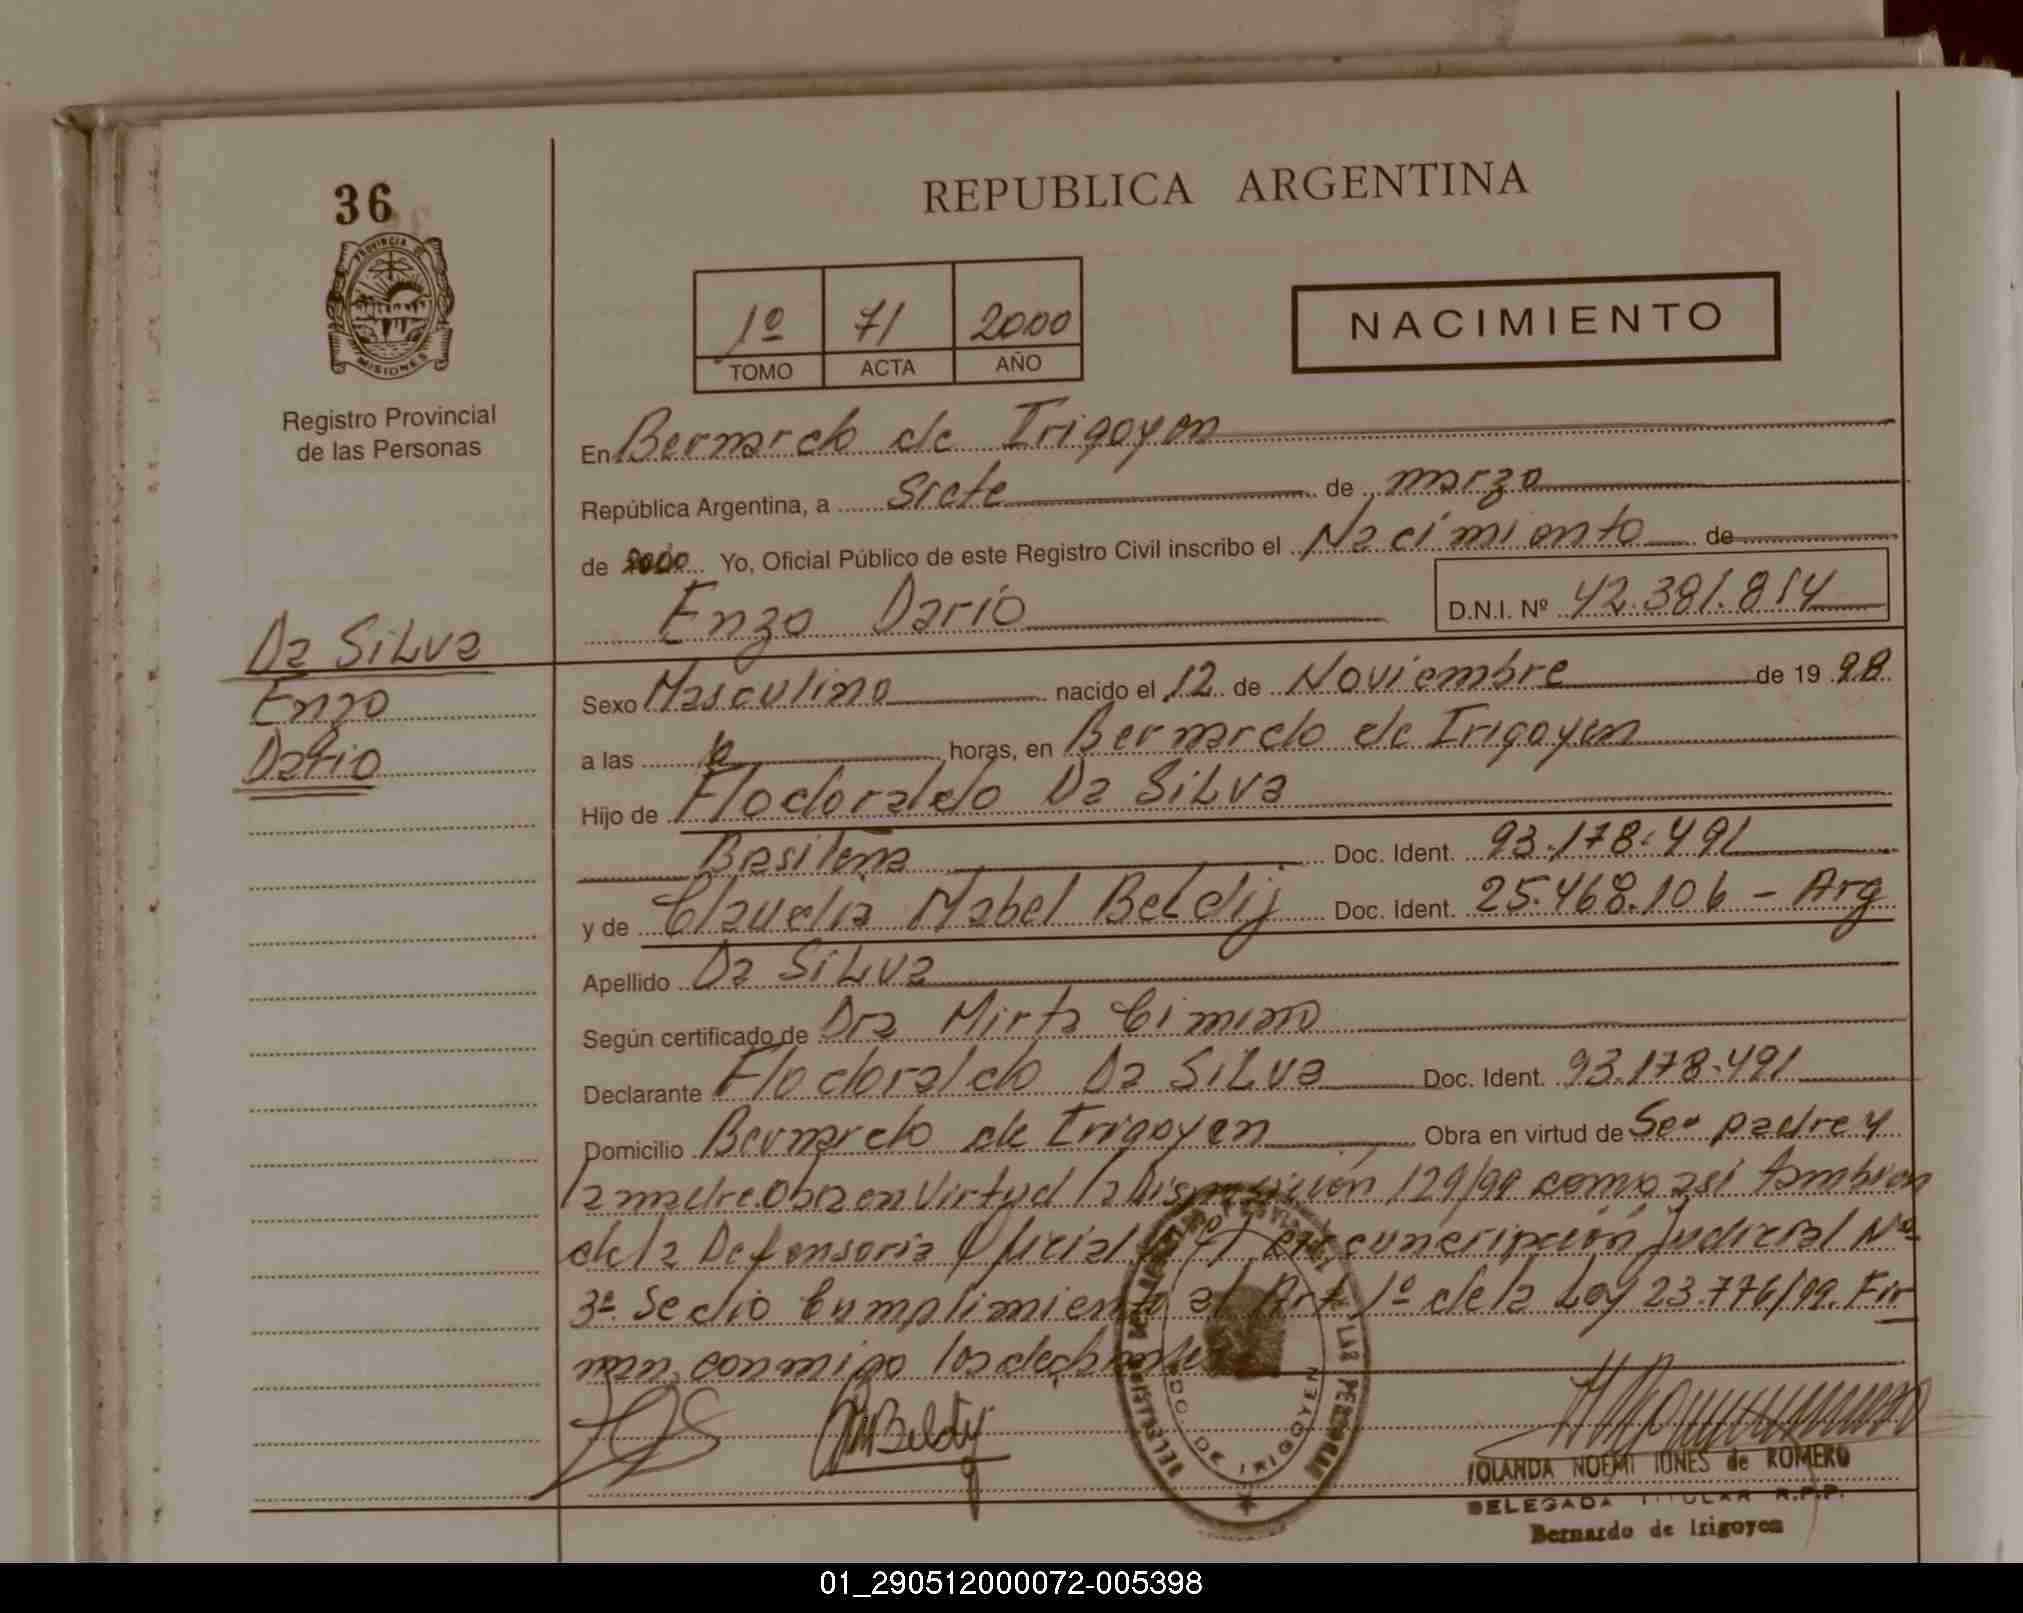 36
PROVINCIA DE MISIONES
Registro Provincial
de las Personas
REPUBLICA ARGENTINA
1º 71 2000
TOMO ACTA AÑO
NACIMIENTO
En Bernardo de Irigoyen
República Argentina, a siete de marzo
de 2000 Yo, Oficial Público de este Registro Civil inscribo el Nacimiento de
Enzo Dario D.N.I. Nº 42.381.814
Da Silva
Enzo
Dario
Sexo Masculino nacido el 12 de Noviembre de 19 98
a las horas, en Bernardo de Irigoyen
Hijo de Flodoraldo Da Silva
Doc. Ident. 93.178.491
y de Claudia Mabel Beldij Doc. Ident. 25.468.106 - Arg
Apellido Da Silva
Según certificado de Dra Mirta Cimino
Declarante Flodoraldo Da Silva Doc. Ident. 93.178.491
Domicilio Bernardo de Irigoyen Obra en virtud de Ser padre y
la madre. Obra en Virtud la Disposición 129/99 como asi tambien
de la Defensoria Oficial circuncripción Judicial Nº
3º Se dio Cumplimiento al Art 1º de la Ley 23.776/99. Fir
man conmigo los
DE IRIGOYEN
IOLANDA NOEMI IONES de ROMERO
DELEGADA TITULAR R.P.P.
Bernardo de Irigoyen
01_290512000072-005398